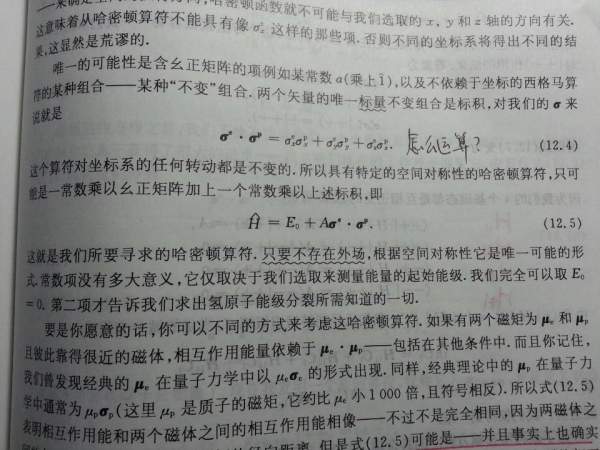 哈密顿函数就不可能与我们选取的 x, y 和 z 轴的方向有关.
这意味着从哈密顿算符不能具有像 σₓᵉ 这样的那些项. 否则不同的坐标系将得出不同的结
果, 这显然是荒谬的.
唯一的可能性是含幺正矩阵的项例如某常数 a(乘上 1̂), 以及不依赖于坐标的西格马算
符的某种组合——某种“不变”组合. 两个矢量的唯一标量不变组合是标积, 对我们的 σ 来
说就是
σᵉ · σᵖ = σₓᵉσₓᵖ + σᵧᵉσᵧᵖ + σ_zᵉσ_zᵖ. 怎么运算? (12.4)
这个算符对坐标系的任何转动都是不变的. 所以具有特定的空间对称性的哈密顿算符, 只可
能是一常数乘以幺正矩阵加上一个常数乘以上述标积, 即
Ĥ = E₀ + Aσᵉ · σᵖ. (12.5)
这就是我们所要寻求的哈密顿算符. 只要不存在外场, 根据空间对称性它是唯一可能的形
式. 常数项没有多大意义, 它仅取决于我们选取来测量能量的起始能级. 我们完全可以取 E₀
= 0. 第二项才告诉我们求出氢原子能级分裂所需知道的一切.
要是你愿意的话, 你可以不同的方式来考虑这哈密顿算符. 如果有两个磁矩为 μₑ 和 μₚ
且彼此靠得很近的磁体, 相互作用能量依赖于 μₑ · μₚ——包括在其他条件中. 而且你记住,
我们曾发现经典的 μₑ 在量子力学中以 μₑσₑ 的形式出现. 同样, 经典理论中的 μₚ 在量子力
学中通常为 μₚσₚ(这里 μₚ 是质子的磁矩, 它约比 μₑ 小 1 000 倍, 且符号相反). 所以式(12.5)
表明相互作用能和两个磁体之间的相互作用能相像——不过不是完全相同, 因为两磁体之
距离. 但是式(12.5)可能是——并且事实上也确实